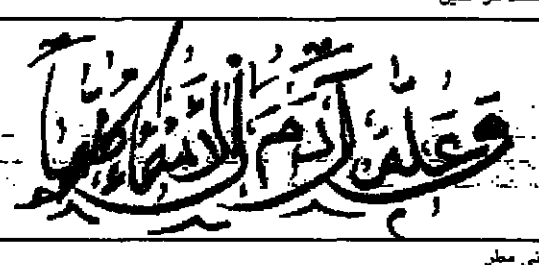 وَعَلَّمَ آدَمَ الْأَسْمَاءَ كُلَّهَا
مطر